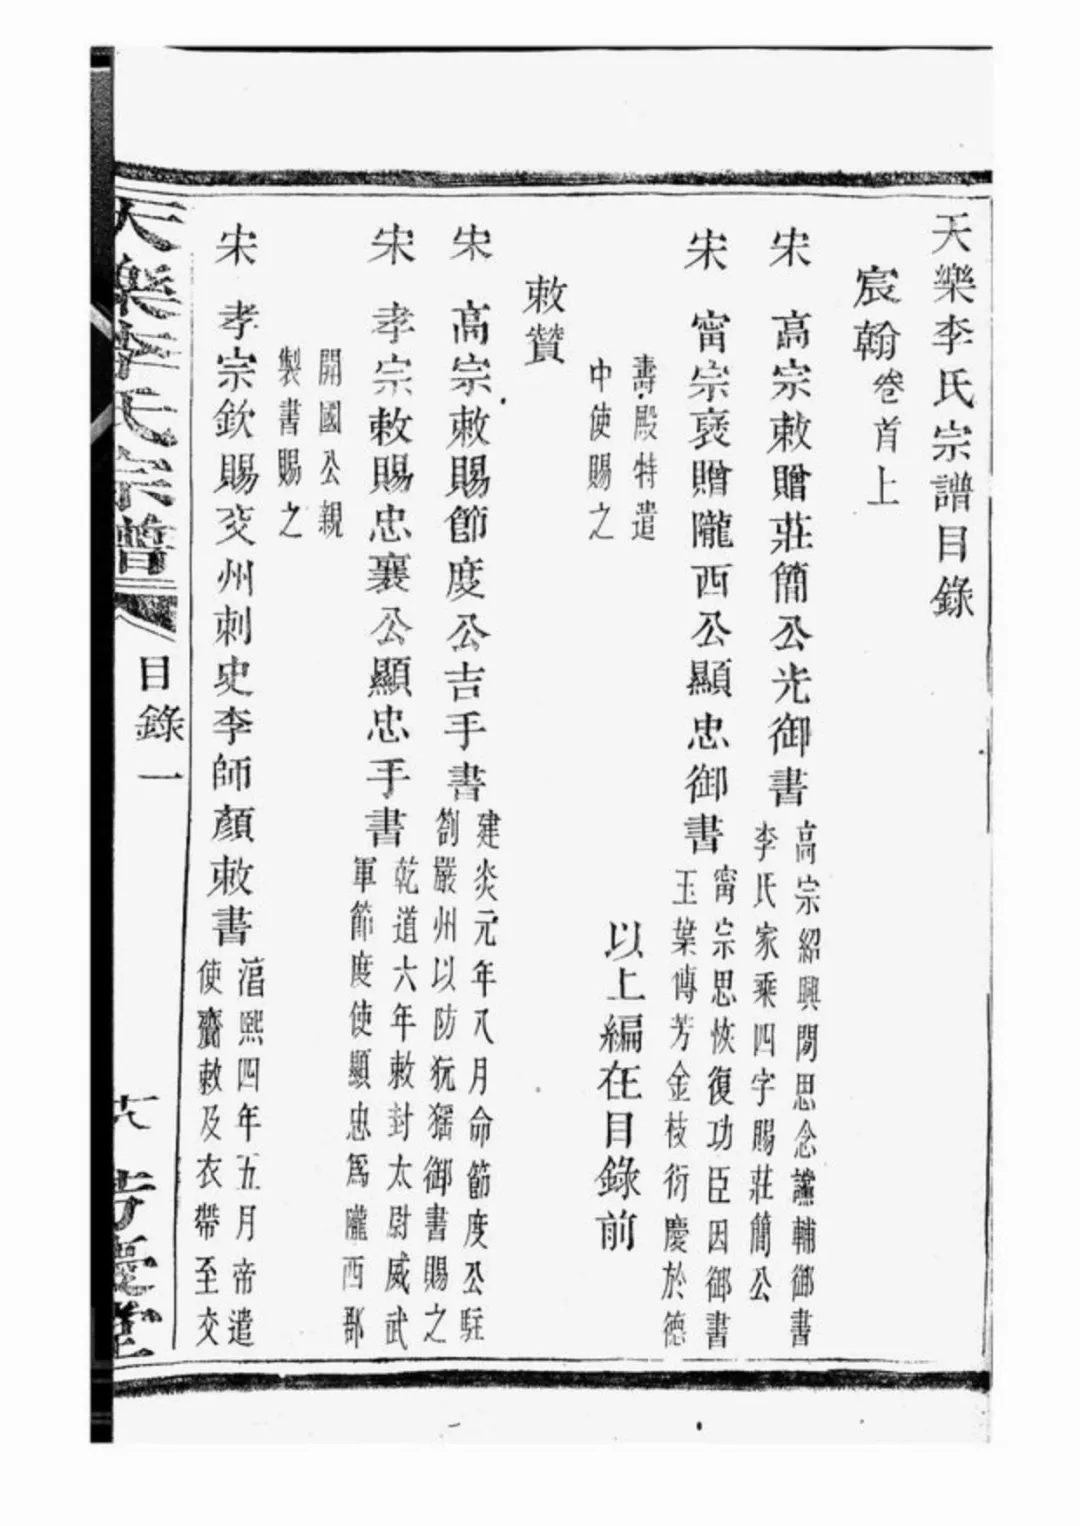 天樂李氏宗譜目錄
宸翰卷首上
宋 高宗敕贈莊簡公光御書
高宗紹興間思念讜輔御書
李氏家乘四字賜莊簡公
宋 甯宗褒贈隴西公顯忠御書
甯宗思恢復功臣因御書
玉葉傳芳金枝衍慶於德
壽殿特遣
中使賜之
以上編在目錄前
敕贊
宋 高宗敕賜節度公吉手書
建炎元年八月命節度公駐
劄嚴州以防猊猺御書賜之
宋 孝宗敕賜忠襄公顯忠手書
乾道六年敕封太尉威武
軍節度使顯忠爲隴西郡
開國公親
製書賜之
宋 孝宗欽賜交州刺史李師顏敕書
湻熙四年五月帝遣
使齎敕及衣帶至交
天樂李氏宗譜
目錄一